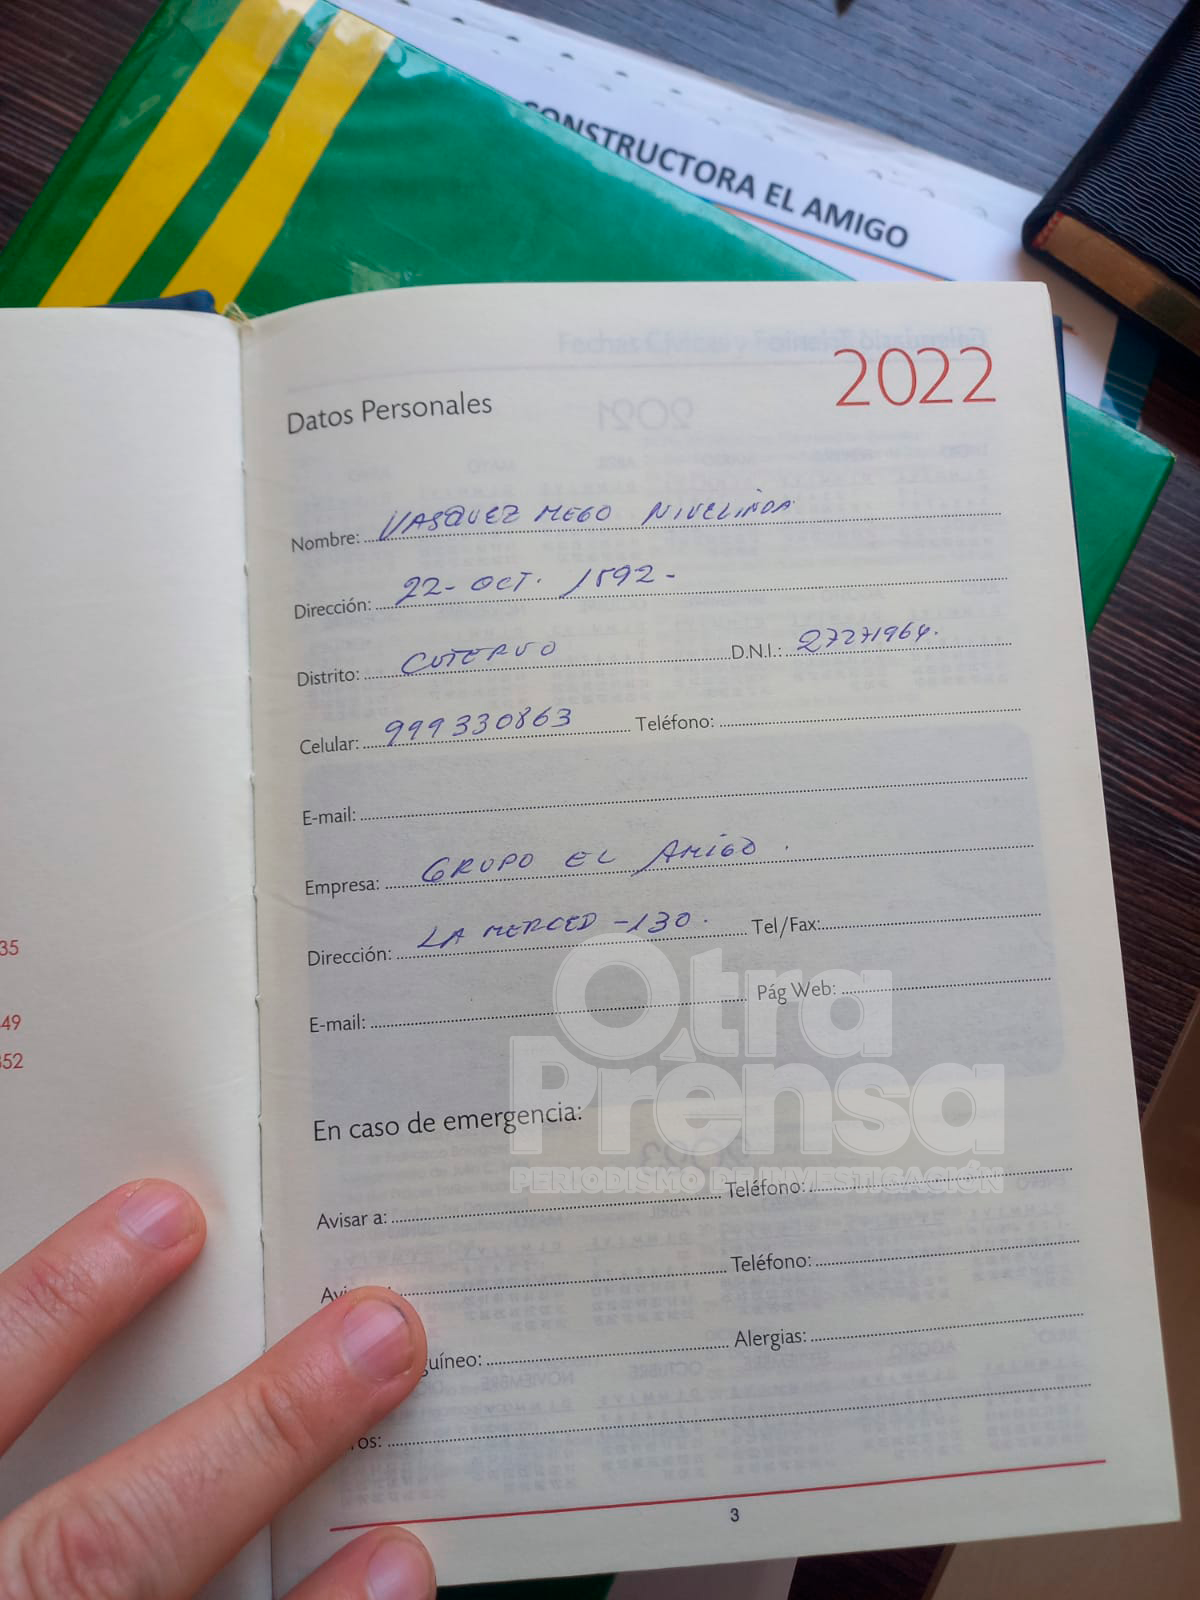 CONSTRUCTORA EL AMIGO
2022
Datos Personales
Nombre: VASQUEZ MEGO NIVELINDA
Dirección: 22- OCT. 1592-
Distrito: CUTERVO D.N.I.: 27271964.
Celular: 999330863 Teléfono:
E-mail:
Empresa: GRUPO EL AMIGO.
Dirección: LA MERCED -130. Tel/Fax:
E-mail: Pág Web:
Otra
Prensa
PERIODISMO DE INVESTIGACIÓN
En caso de emergencia:
Avisar a: Teléfono:
Teléfono:
guíneo: Alergias:
os:
3
35
49
352